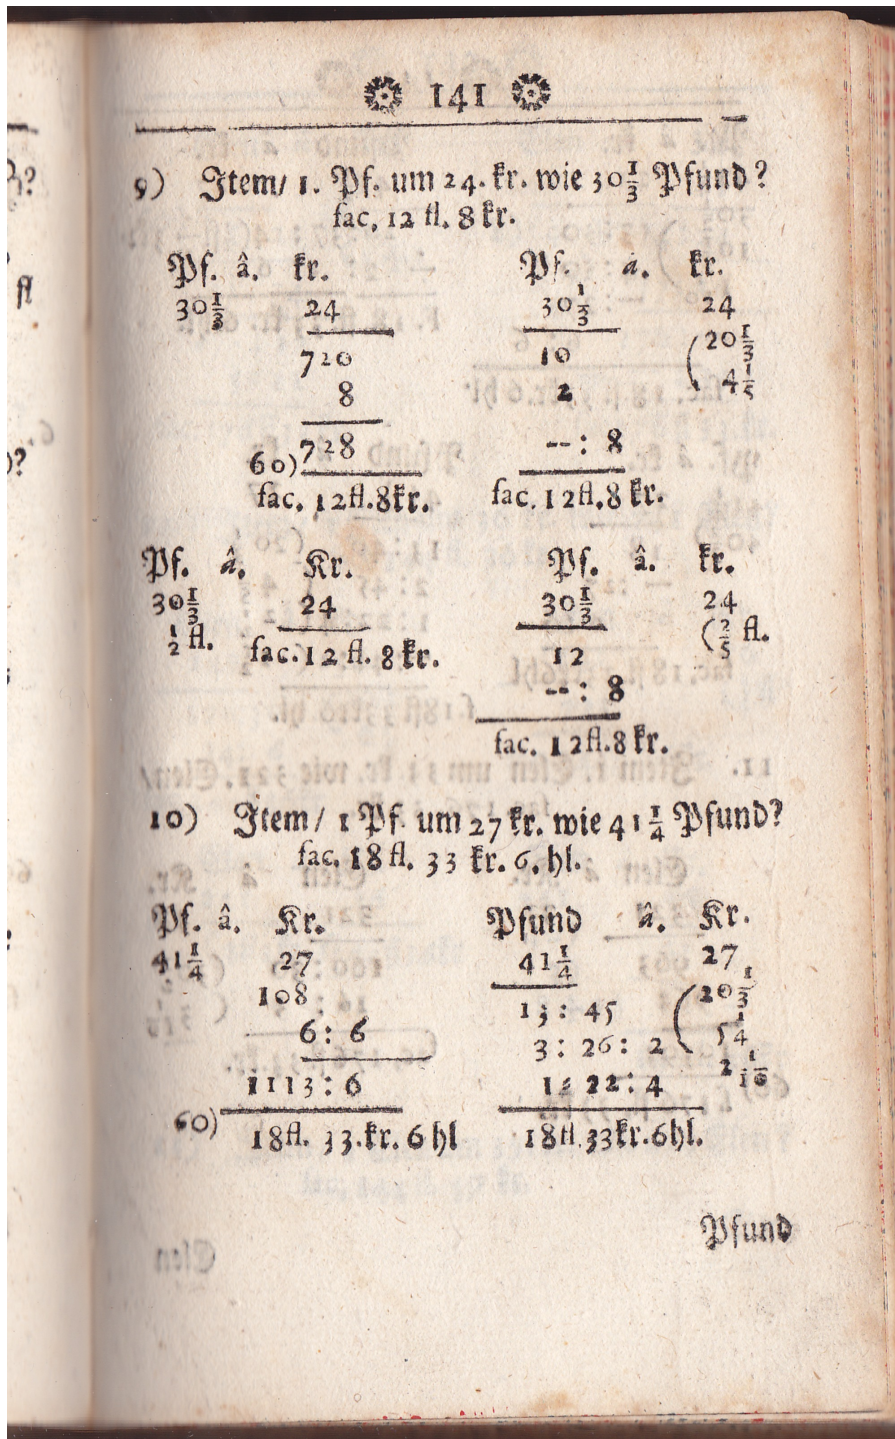 141
9) Item/ 1. Pf. um 24. kr. wie 30 1/3 Pfund?
fac, 12 fl. 8 kr.
Pf. â. kr.
30 1/3 24
720
8
60) 728
fac. 12fl.8kr.
Pf. a. kr.
30 1/3 24
10 (20 1/3
2 4 1/5
--: 8
fac. 12fl.8 kr.
Pf. â. Kr.
30 1/3 24
1/2 fl. fac. 12 fl. 8 kr.
Pf. â. kr.
30 1/3 24
(2/5 fl.
12
--: 8
fac. 12fl.8 kr.
10) Item/ 1 Pf. um 27 kr. wie 41 1/4 Pfund?
fac. 18 fl. 33 kr. 6. hl.
Pf. â. Kr.
41 1/4 27
108
6: 6
1113: 6
60)
18fl. 33.kr. 6 hl
Pfund â. Kr.
41 1/4 27
13: 45 (20 1/3
3: 26: 2 5 1/4
1: 22: 4 2 1/10
18fl.33kr.6hl.
Pfund